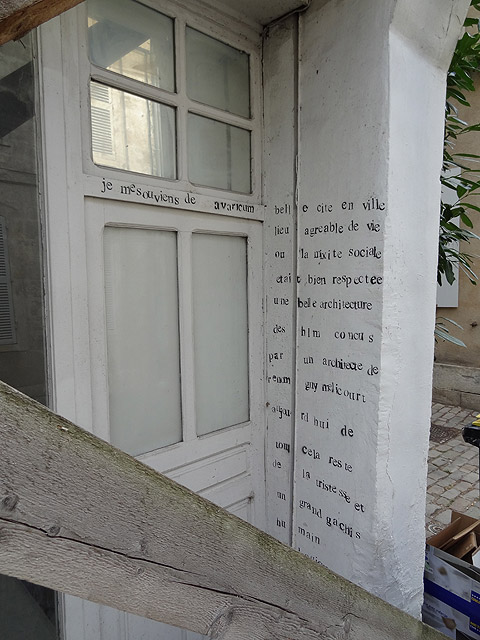 je mesouviens de avaricum
belle cite en ville
lieu agreable de vie
ou la mixite sociale
etait bien respectee
une belle architecture
des hlm concus
par un architecte de
renom guy malicourt
aujourd hui de
tout cela reste
de la tristesse et
un grand gachis
humain